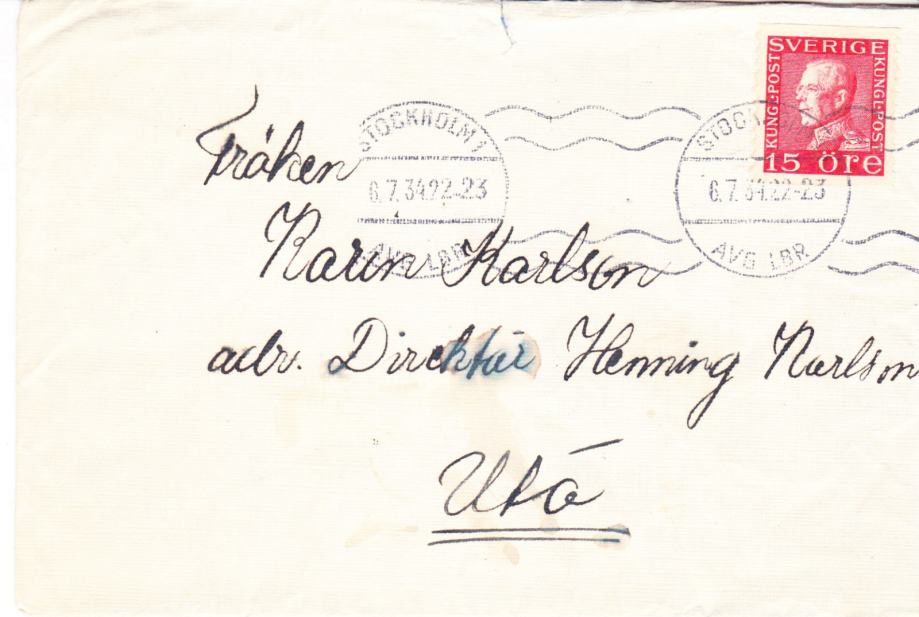 SVERIGE
KUNGL·POST
KUNGL·POST
15 öre
STOCKHOLM 1
6.7.34.22-23
AVG LBR
STOCKHOLM
6.7.34.22-23
AVG LBR
Fröken
Karin Karlson
adr. Direktör Henning Karlson
Utö